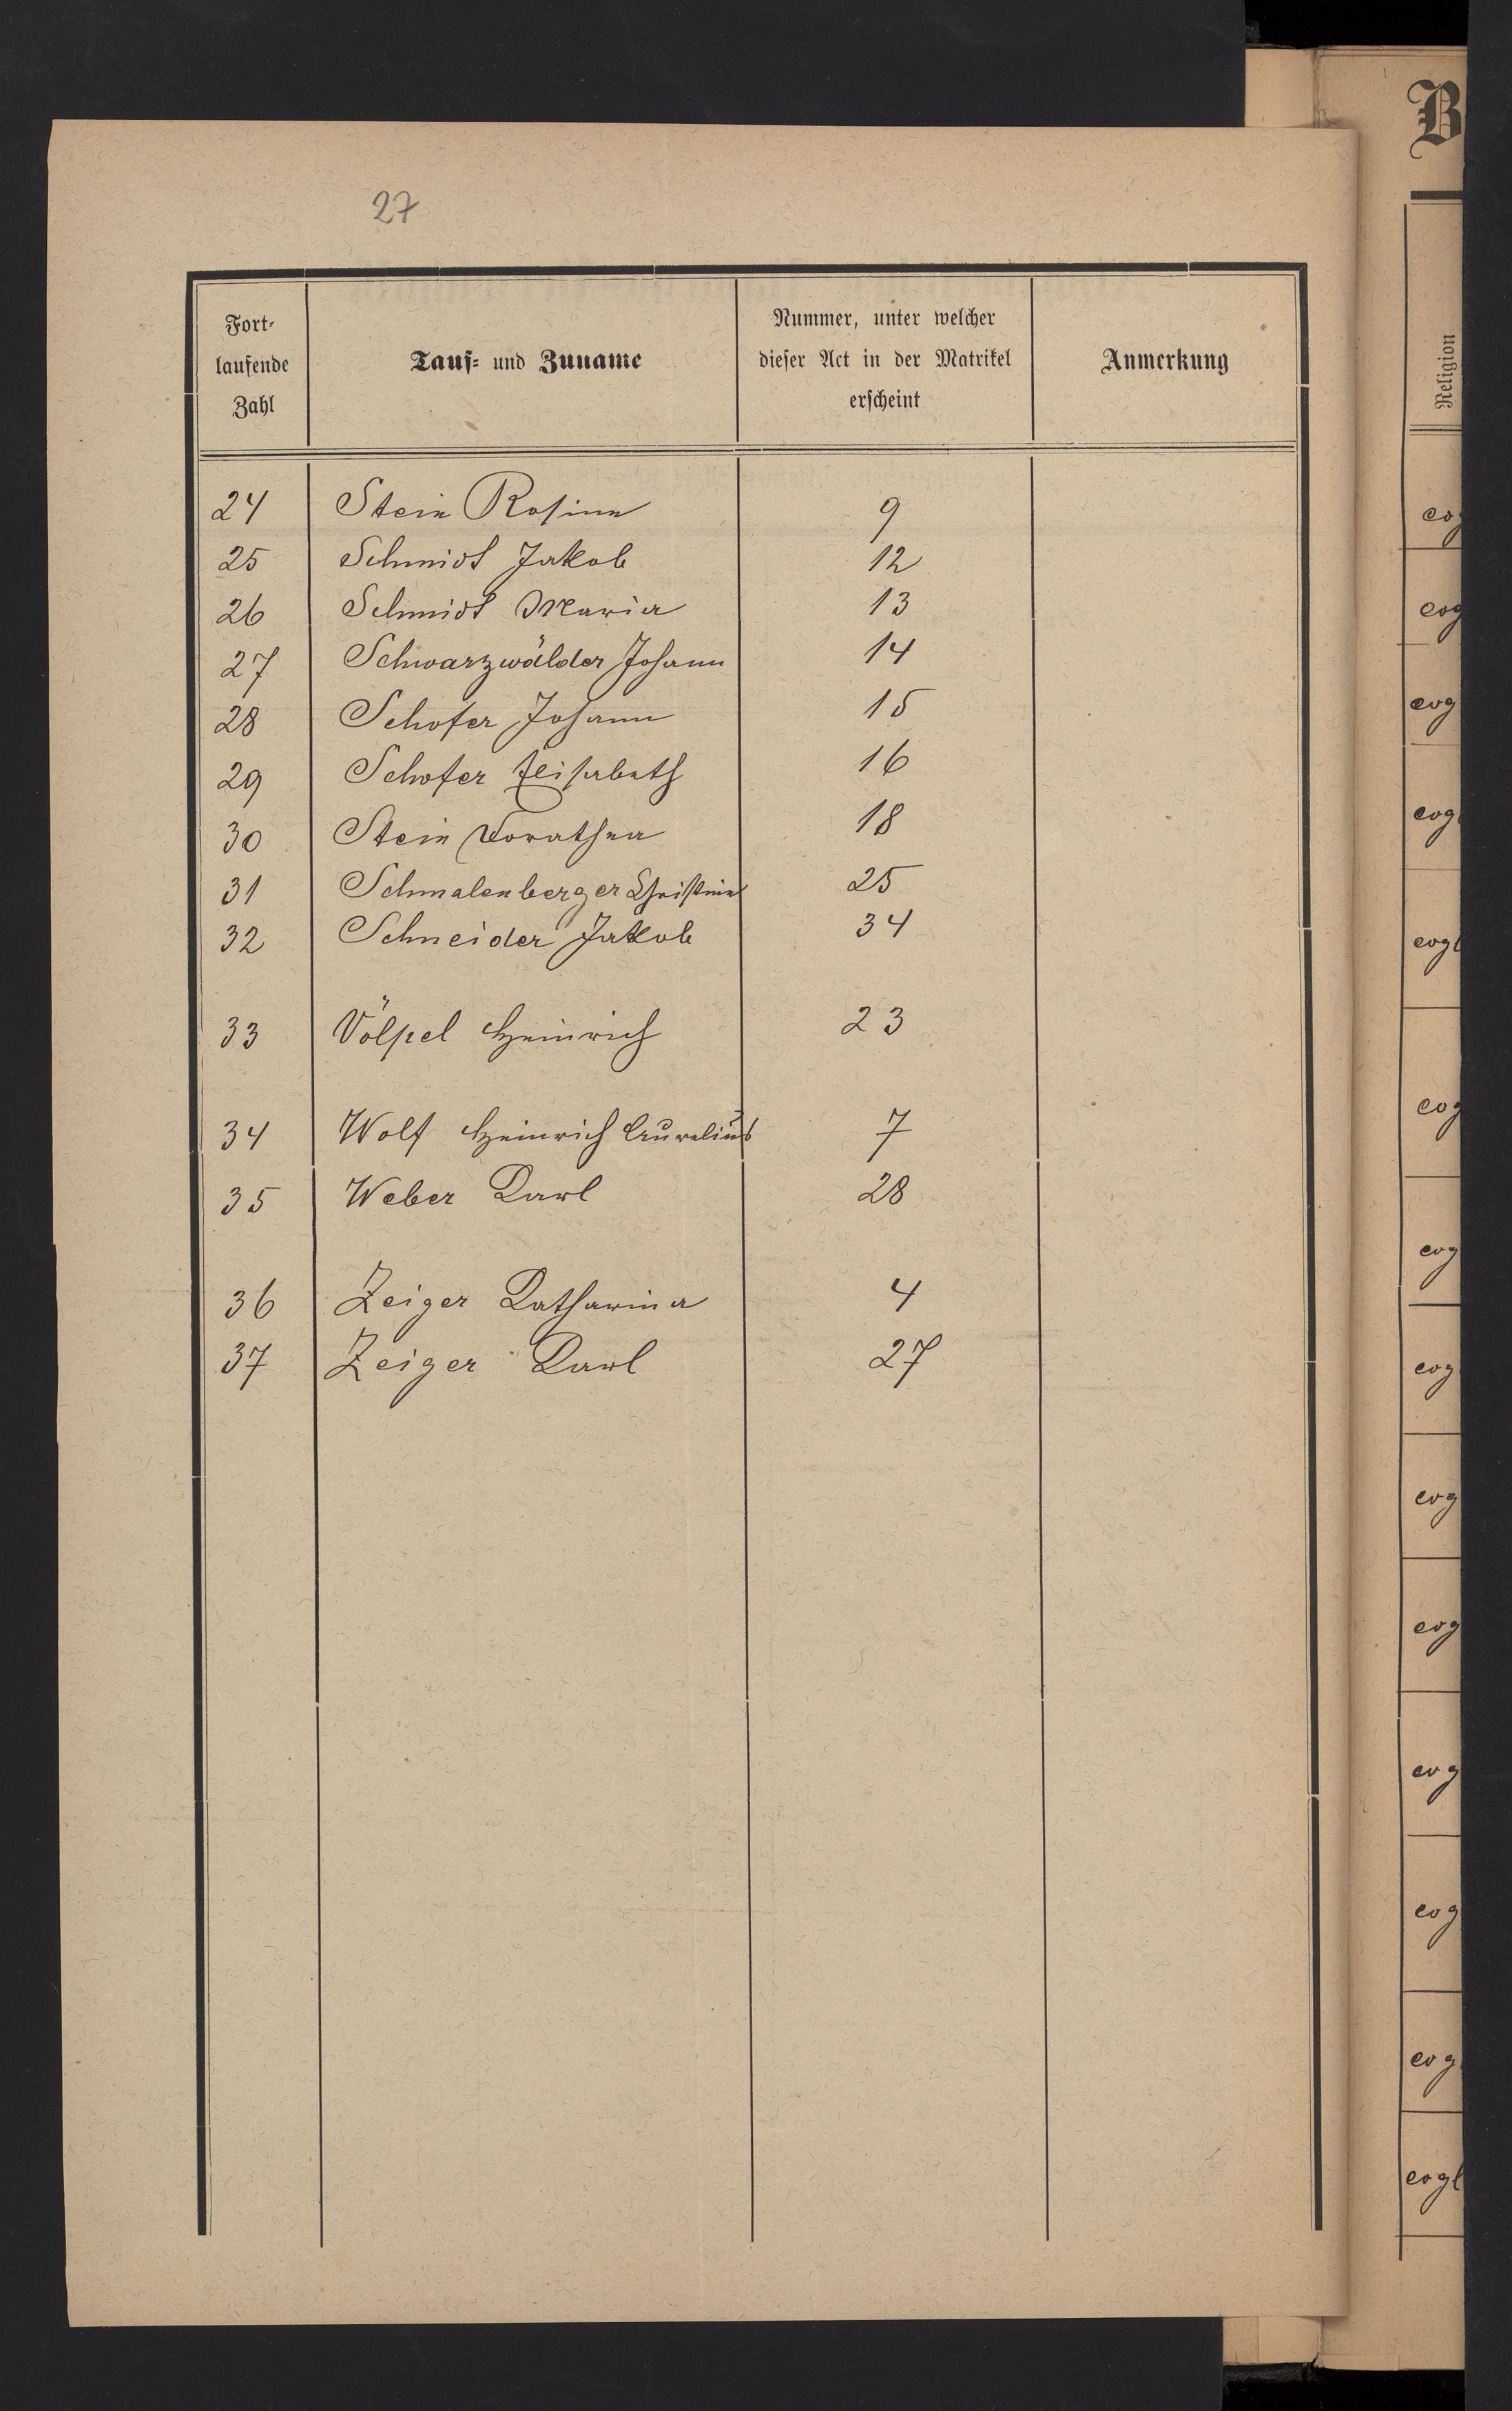 27
Fort-
laufende
Zahl
Tauf- und Zuname
Nummer, unter welcher
dieser Act in der Matrikel
erscheint
Anmerkung
24 Stein Rosina 9
25 Schmidt Jakob 12
26 Schmidt Maria 13
27 Schwarzwälder Johann 14
28 Schofer Johann 15
29 Schofer Elisabeth 16
30 Stein Dorathea 18
31 Schmalenberger Christina 25
32 Schneider Jakob 34
33 Völpel Heinrich 23
34 Wolf Heinrich Aurelius 7
35 Weber Karl 28
36 Zeiger Katharina 4
37 Zeiger Karl 27
B
Religion
evg
evg
evg
evgl
evgl
evg
evg
evg
evg
evg
evg
evg
evg
evgl